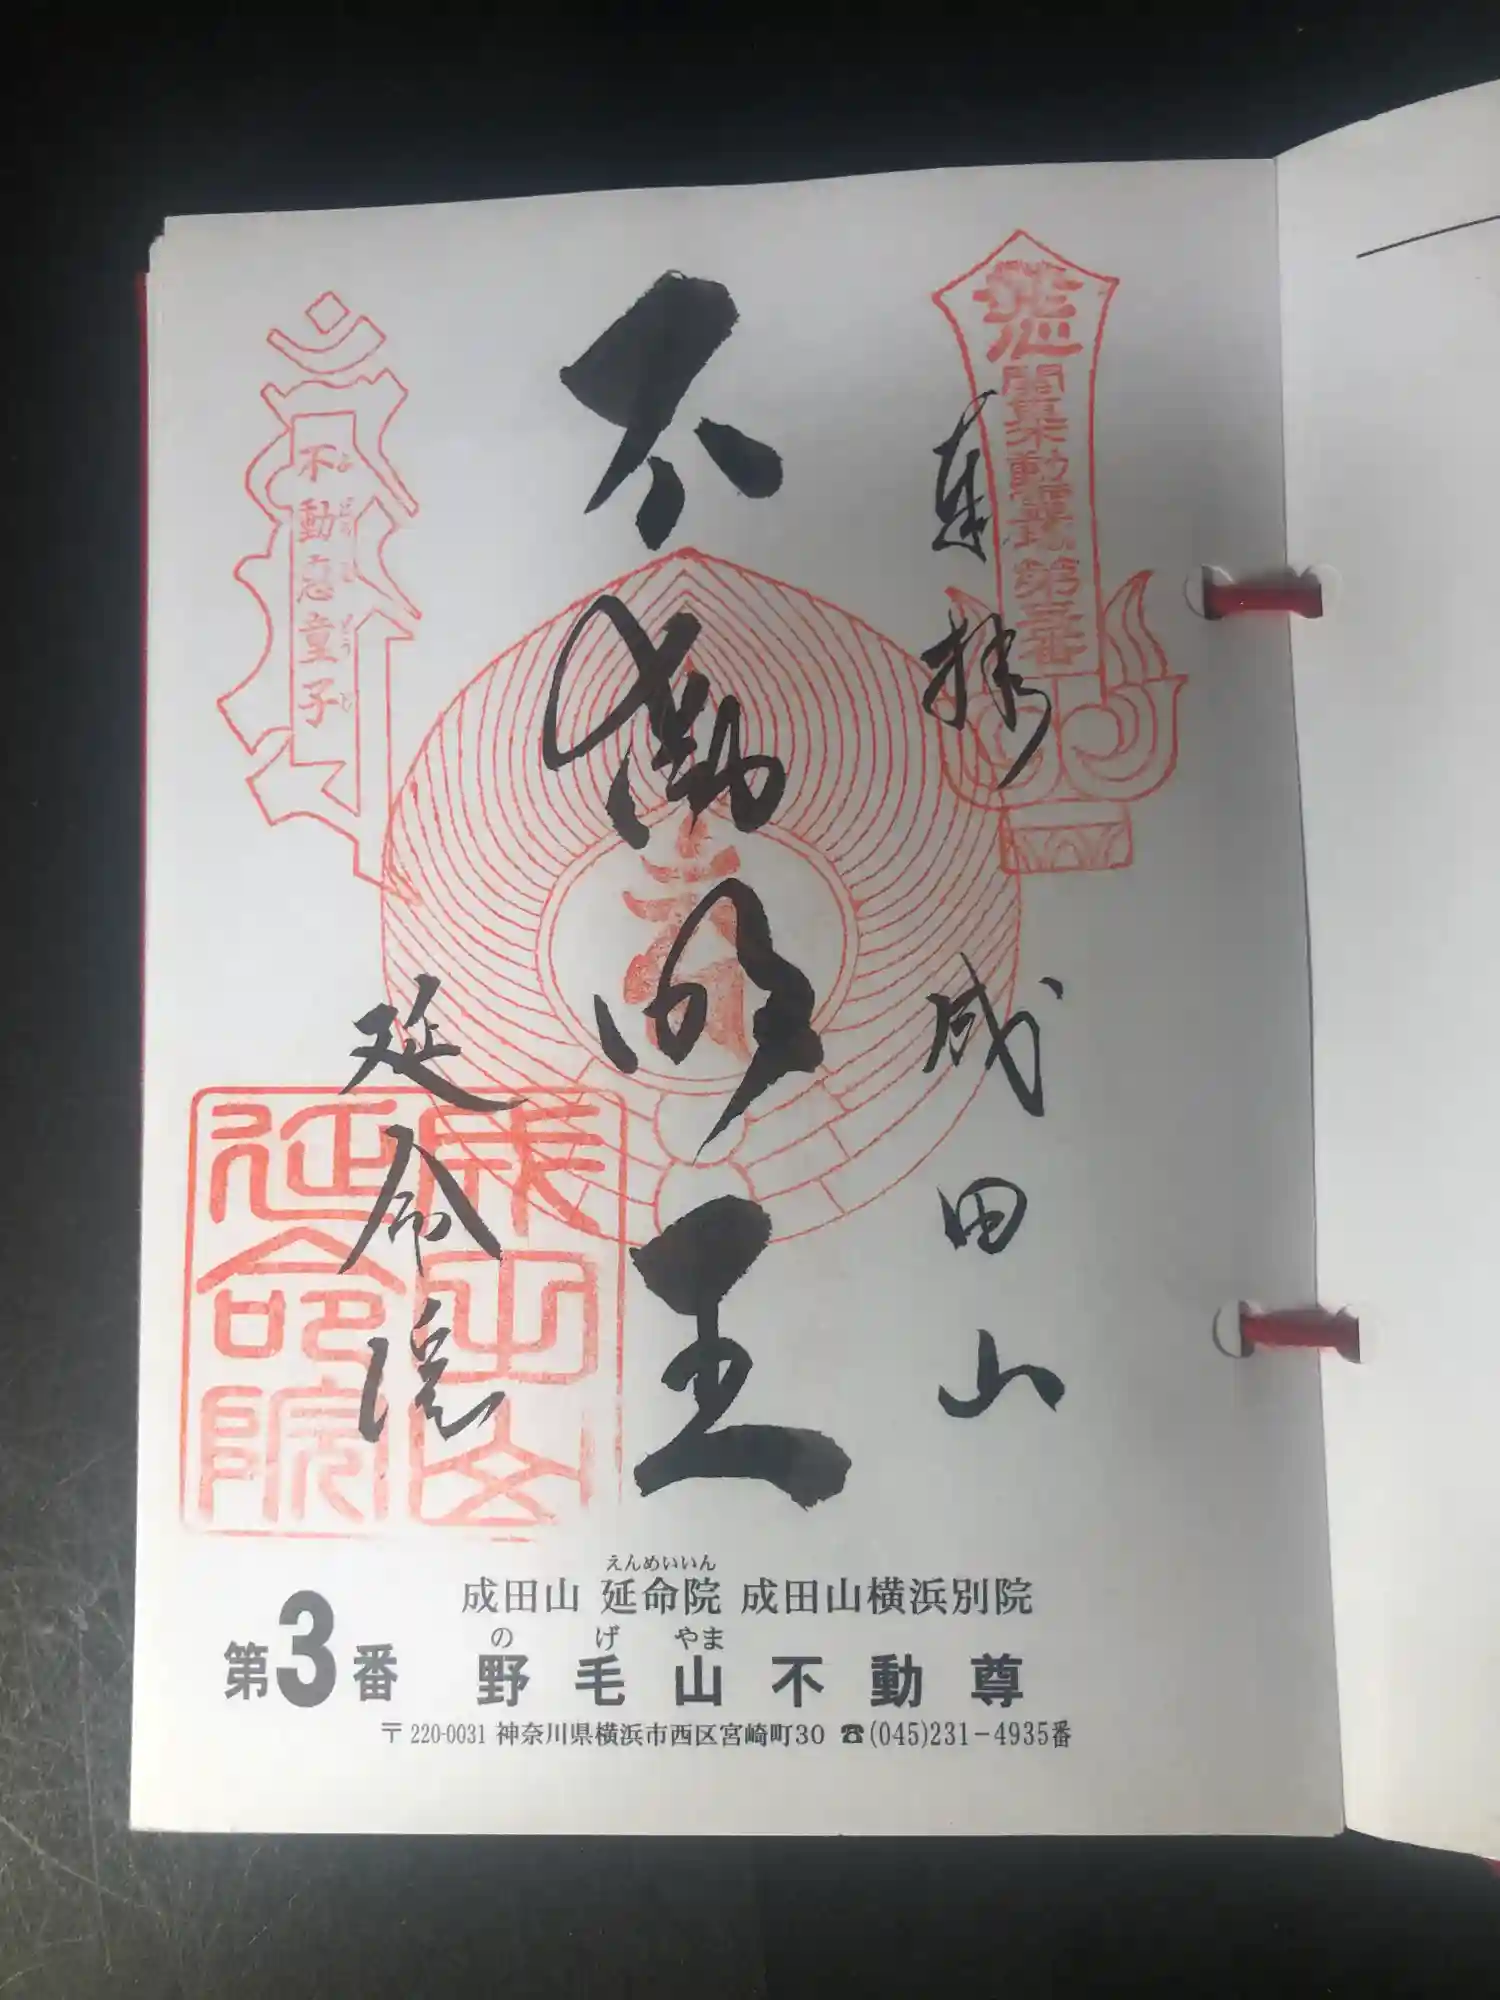 奉拝 成田山
不動明王
延命院
関東不動霊場第三番
不動恵童子
成田山
延命院
えんめいいん
成田山 延命院 成田山横浜別院
の げ やま
第3番 野毛山不動尊
〒220-0031 神奈川県横浜市西区宮崎町30 ☎(045)231-4935番